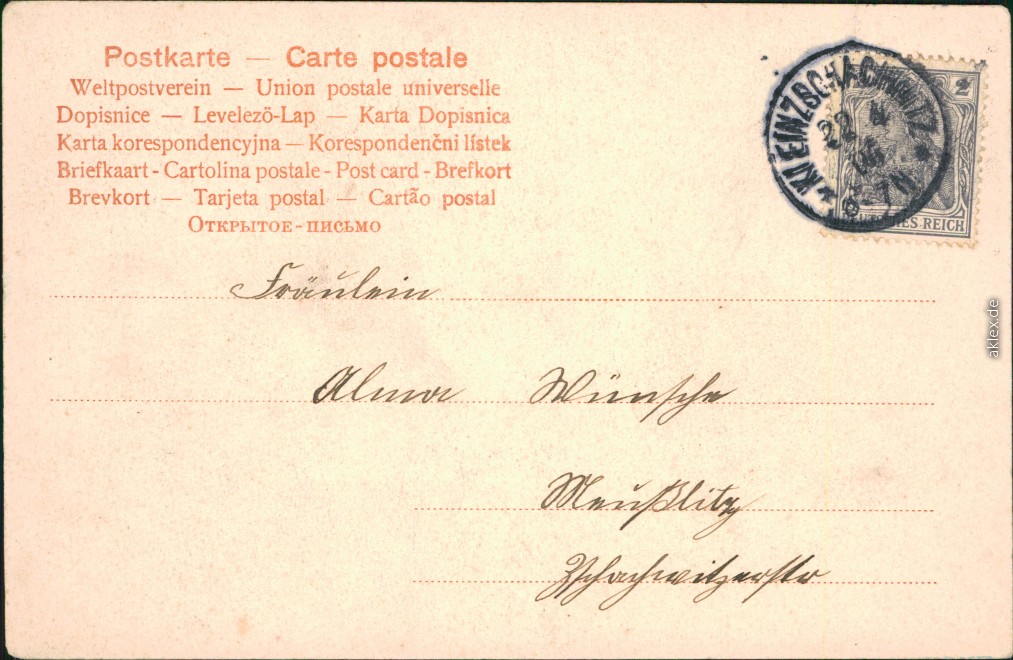 Postkarte — Carte postale
Weltpostverein — Union postale universelle
Dopisnice — Levelező-Lap — Karta Dopisnica
Karta korespondencyjna — Korespondenční lístek
Briefkaart - Cartolina postale - Post card - Brefkort
Brevkort — Tarjeta postal — Cartão postal
Открытое-письмо
KLEINZSCHACHWITZ
22 4
06
7N
2
REICH
Fräulein
Alma Wünsche
Meußlitz
Zschachwitzerstr
aklex.de